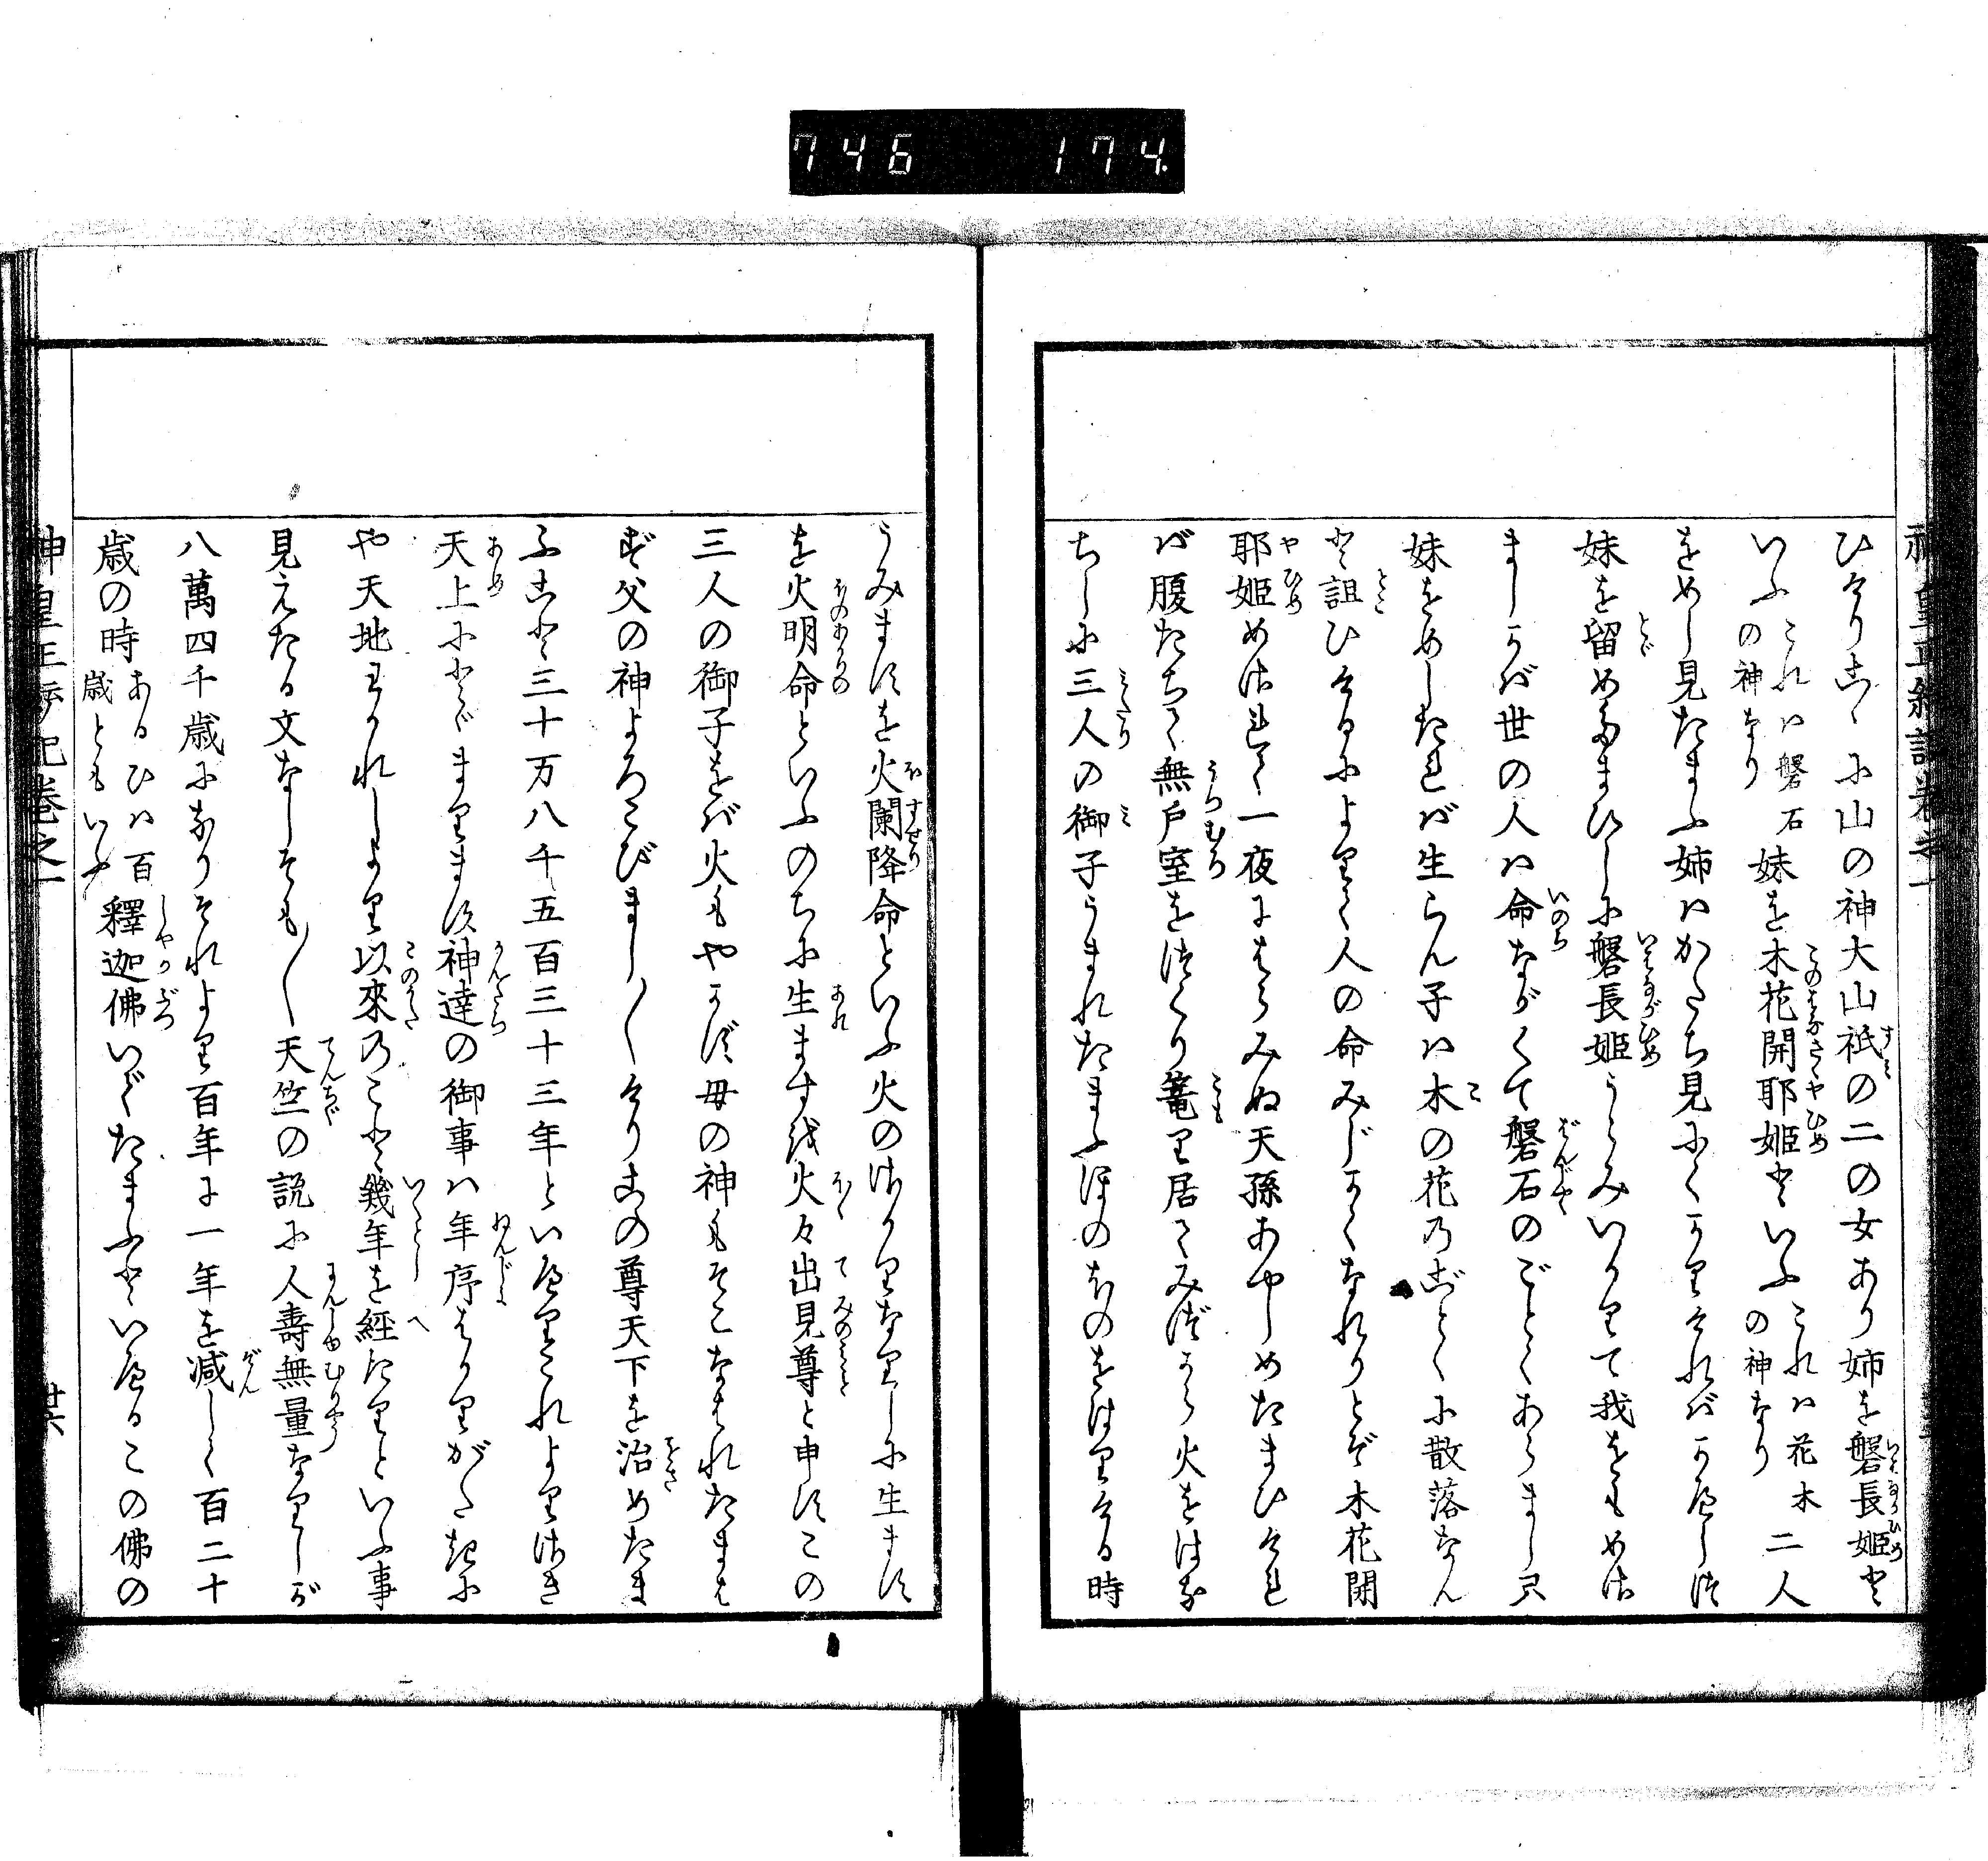 746 174
ひけりこゝに山の神大山祇の二の女あり姉を磐長姫と
いふこれハ磐石の神なり妹を木花開耶姫といふこれハ花木の神なり二人
をめし見たまふ姉ハかたち見にくかりけれバかへしつ
妹を留めたまひしに磐長姫うらみいかりて我をもめさ
ましかバ世の人ハ命ながくて磐石のごとくあらまし只
妹をめしたれバ生らん子ハ木の花のごとくに散落なん
と詛ひけるによりて人の命みじかくなれりとぞ木花開
耶姫めされて一夜にはらみぬ天孫あやしめたまひけれ
バ腹たちて無戸室をつくり篭り居てみづから火をはな
ちしに三人の御子うまれたまふほのほのをはりける時
うみますを火闌降命といふ火のさかりなりしに生ます
を火明命といふのちに生ます代火々出見尊と申すこの
三人の御子をバ火もやかず母の神もそこなはれたまは
ず父の神よろこびまし〳〵けりこの尊天下を治めたま
ふこと三十万八千五百三十三年といへりこれよりさき
天上にとゞまります神達の御事ハ年序はかりがたきに
や天地わかれしより以來のこと幾年を経たりといふ事
見えたる文なしそも〳〵天竺の説に人壽無量なりしが
八萬四千歳になりそれより百年に一年を減して百二十
歳の時あるひハ百歳ともいふ釋迦佛いでたまふといへるこの佛の
神皇正統記巻之一
廿六